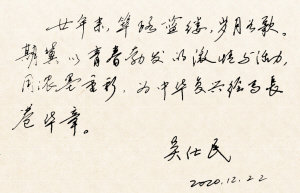 廿年来，筚路蓝缕，岁月如歌。
期冀以青春勃发的激情与活力，
用浓墨重彩，为中华复兴谱写长
卷华章。
吴仕民
2020.12.22